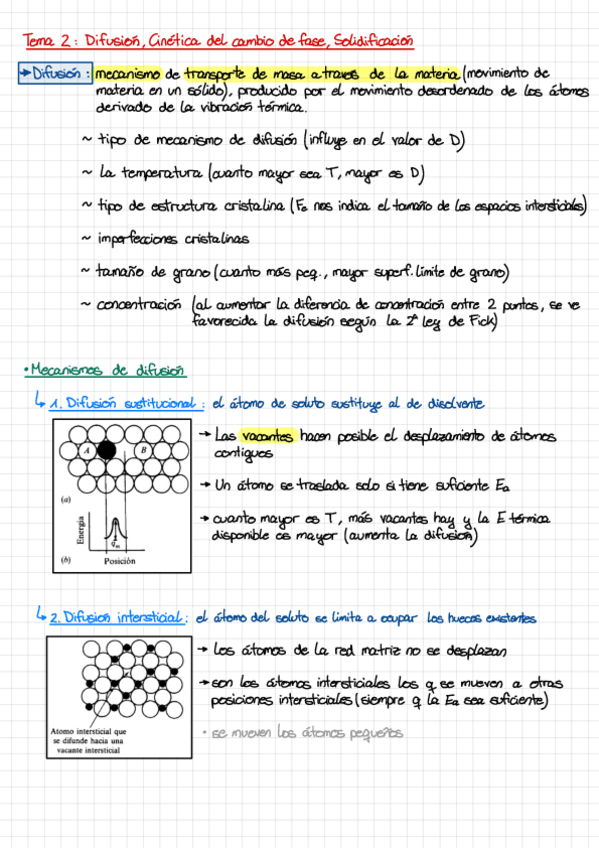 Tema 2: Difusión, Cinética del cambio de fase, Solidificación
→ Difusión: mecanismo de transporte de masa a traves de la materia (movimiento de
materia en un sólido), producido por el movimiento desordenado de los átomos
derivado de la vibración térmica.
~ tipo de mecanismo de difusión (influye en el valor de D)
~ la temperatura (cuanto mayor sea T, mayor es D)
~ tipo de estructura cristalina (Fe nos indica el tamaño de los espacios intersticiales)
~ imperfecciones cristalinas
~ tamaño de grano (cuanto más peq., mayor superf. límite de grano)
~ concentración (al aumentar la diferencia de concentración entre 2 puntos, se ve
favorecida la difusión según la 2ª ley de Fick)
• Mecanismos de difusión
↳ 1. Difusión sustitucional: el átomo de soluto sustituye al de disolvente
A
B
(a)
Energía
qm
(b)
Posición
→ Las vacantes hacen posible el desplazamiento de átomos
contiguos
→ Un átomo se traslada solo si tiene suficiente Ea
→ cuanto mayor es T, más vacantes hay y la E térmica
disponible es mayor (aumenta la difusión)
↳ 2. Difusión intersticial: el átomo del soluto se limita a ocupar los huecos existentes
Atomo intersticial que
se difunde hacia una
vacante intersticial
→ Los átomos de la red matriz no se desplazan
→ son los átomos intersticiales los q se mueven a otras
posiciones intersticiales (siempre q la Ea sea suficiente)
• se mueven los átomos pequeños